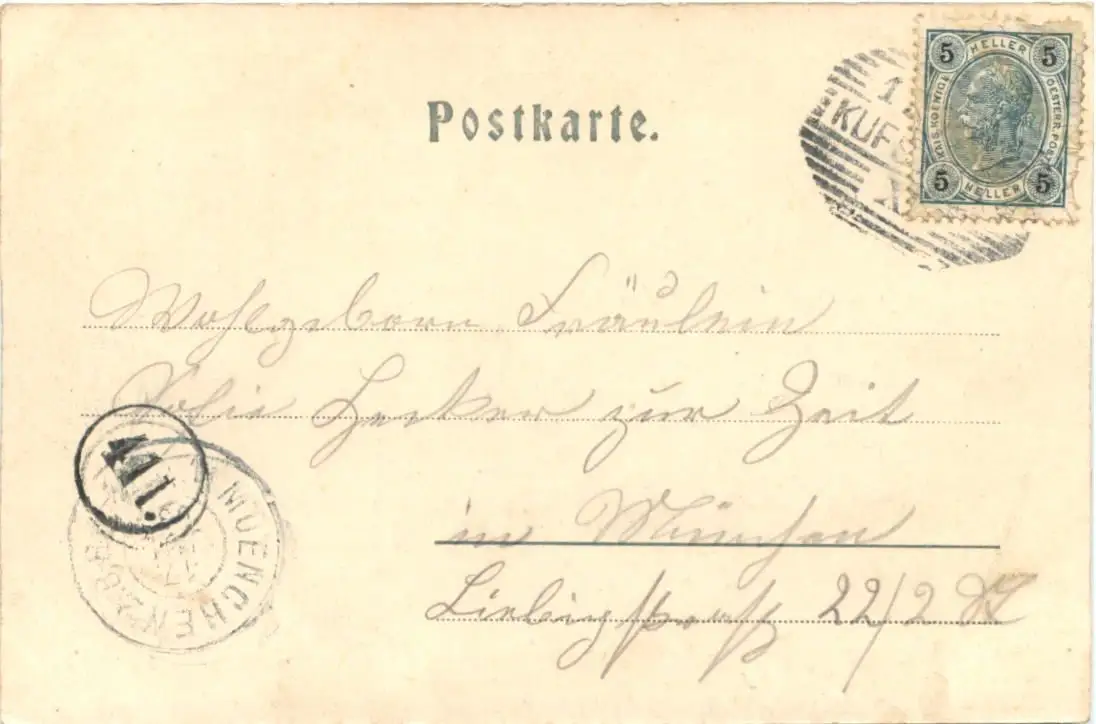 Postkarte.
5 HELLER 5
KAIS. KOENIGL. OESTERR. POST
5 HELLER 5
1
KUF
Wohlgeborn Fräulein
Julie Hecker zur Zeit
in München
Liebigstraße 22/2
41b.
MUENCHEN 2.B.